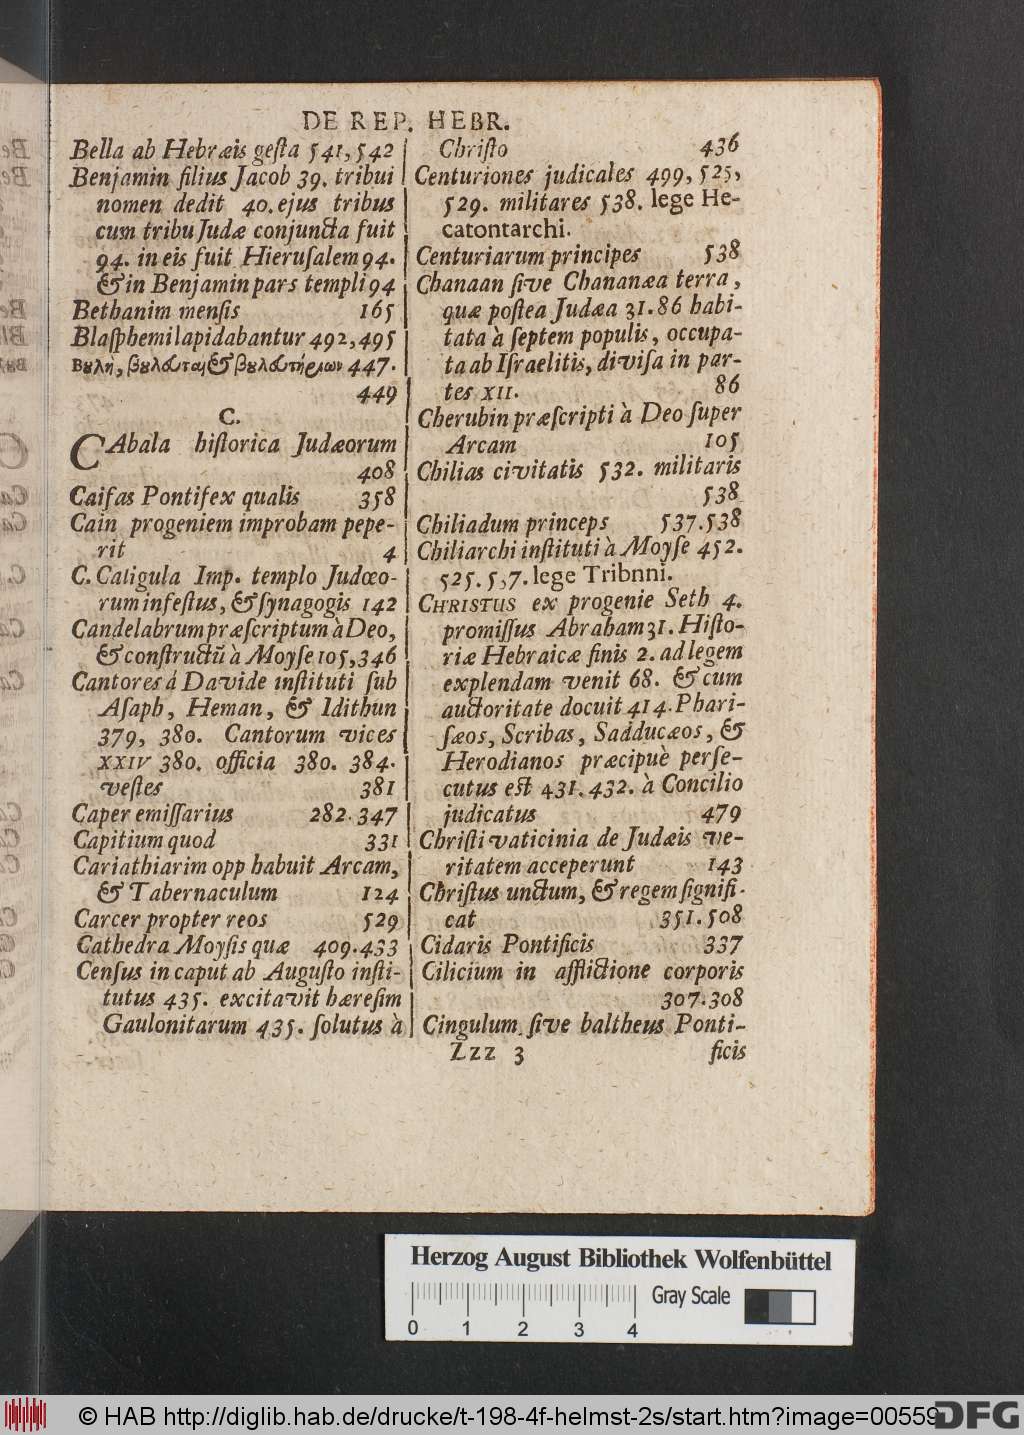 DE REP. HEBR.
Bella ab Hebræis geſta 541,542
Benjamin filius Jacob 39. tribui
nomen dedit 40. ejus tribus
cum tribu Judæ conjuncta fuit
94. in eis fuit Hieruſalem 94.
& in Benjamin pars templi 94
Bethanim menſis 165
Blaſphemi lapidabantur 492,495
Βȣλὴ, βȣλευταὶ & βȣλευτήριων 447.
449
C.
CAbala hiſtorica Judæorum
408
Caifas Pontifex qualis 358
Cain progeniem improbam pepe-
rit 4
C. Caligula Imp. templo Judœo-
rum infeſtus, & ſynagogis 142
Candelabrum præſcriptum à Deo,
& conſtructũ à Moyſe 105,346
Cantores á Davide inſtituti ſub
Aſaph, Heman, & Idithun
379, 380. Cantorum vices
XXIV 380. officia 380. 384.
veſtes 381
Caper emiſſarius 282.347
Capitium quod 331
Cariathiarim opp habuit Arcam,
& Tabernaculum 124
Carcer propter reos 529
Cathedra Moyſis quæ 409.433
Cenſus in caput ab Auguſto inſti-
tutus 435. excitavit hæreſim
Gaulonitarum 435. ſolutus à
Chriſto 436
Centuriones judicales 499, 525,
529. militares 538. lege He-
catontarchi.
Centuriarum principes 538
Chanaan ſive Chananæa terra,
quæ poſtea Judæa 31.86 habi-
tata à ſeptem populis, occupa-
ta ab Iſraelitis, diviſa in par-
tes XII. 86
Cherubin præſcripti à Deo ſuper
Arcam 105
Chilias civitatis 532. militaris
538
Chiliadum princeps 537.538
Chiliarchi inſtituti à Moyſe 452.
525. 537. lege Tribnni.
CHRISTUS ex progenie Seth 4.
promiſſus Abraham 31. Hiſto-
riæ Hebraicæ finis 2. ad legem
explendam venit 68. & cum
auctoritate docuit 414. Phari-
ſæos, Scribas, Sadducæos, &
Herodianos præcipuè perſe-
cutus eſt 431. 432. à Concilio
judicatus 479
Chriſti vaticinia de Judæis ve-
ritatem acceperunt 143
Chriſtus unctum, & regem ſignifi-
cat 351.508
Cidaris Pontificis 337
Cilicium in afflictione corporis
307.308
Cingulum ſive baltheus Ponti-
Zzz 3 ficis
Herzog August Bibliothek Wolfenbüttel
Gray Scale
0 1 2 3 4
© HAB http://diglib.hab.de/drucke/t-198-4f-helmst-2s/start.htm?image=00559
DFG